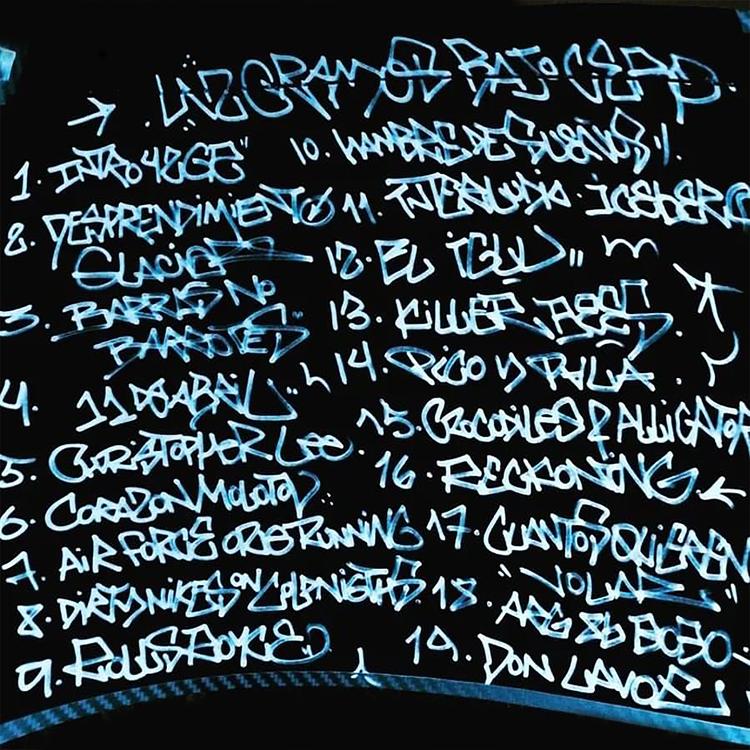 42 GRAMOS BAJO CERO
1. INTRO 42GE"
2. DESPRENDIMIENTO
GLACIAR
3. BARRAS NO
BARROTES
4. 11 DE ABRIL
5. CHRISTOPHER LEE
6. CORAZON MOLOTOV
7. AIR FORCE ONES RUNNING
8. DIRTY NIKES ON
9. ROLLS ROYCE
10. HAMBRE DE SUEÑOS
11. INTERLUDIO ICEBERG
12. EL IGLU
13. KILLER BEES
14. PICO Y PALA
15. CROCODILES & ALLIGATOR
16. RECKONING
17. CUANTOS QUIEREN
"VOLAR"
18. ARG 86 BOBO
19. DON LAVOE